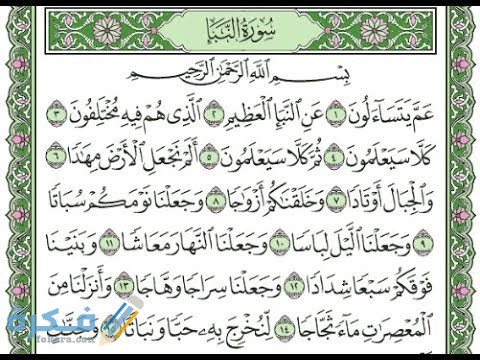 سُورَةُ النَّبَإِ
بِسْمِ اللَّهِ الرَّحْمَٰنِ الرَّحِيمِ
عَمَّ يَتَسَآءَلُونَ ١ عَنِ ٱلنَّبَإِ ٱلْعَظِيمِ ٢ ٱلَّذِى هُمْ فِيهِ مُخْتَلِفُونَ ٣
كَلَّا سَيَعْلَمُونَ ٤ ثُمَّ كَلَّا سَيَعْلَمُونَ ٥ أَلَمْ نَجْعَلِ ٱلْأَرْضَ مِهَٰدًا ٦
وَٱلْجِبَالَ أَوْتَادًا ٧ وَخَلَقْنَٰكُمْ أَزْوَٰجًا ٨ وَجَعَلْنَا نَوْمَكُمْ سُبَاتًا
٩ وَجَعَلْنَا ٱلَّيْلَ لِبَاسًا ١٠ وَجَعَلْنَا ٱلنَّهَارَ مَعَاشًا ١١ وَبَنَيْنَا
فَوْقَكُمْ سَبْعًا شِدَادًا ١٢ وَجَعَلْنَا سِرَاجًا وَهَّاجًا ١٣ وَأَنزَلْنَا مِنَ
ٱلْمُعْصِرَٰتِ مَآءً ثَجَّاجًا ١٤ لِّنُخْرِجَ بِهِۦ حَبًّا وَنَبَاتًا
فكرة
fekera.com